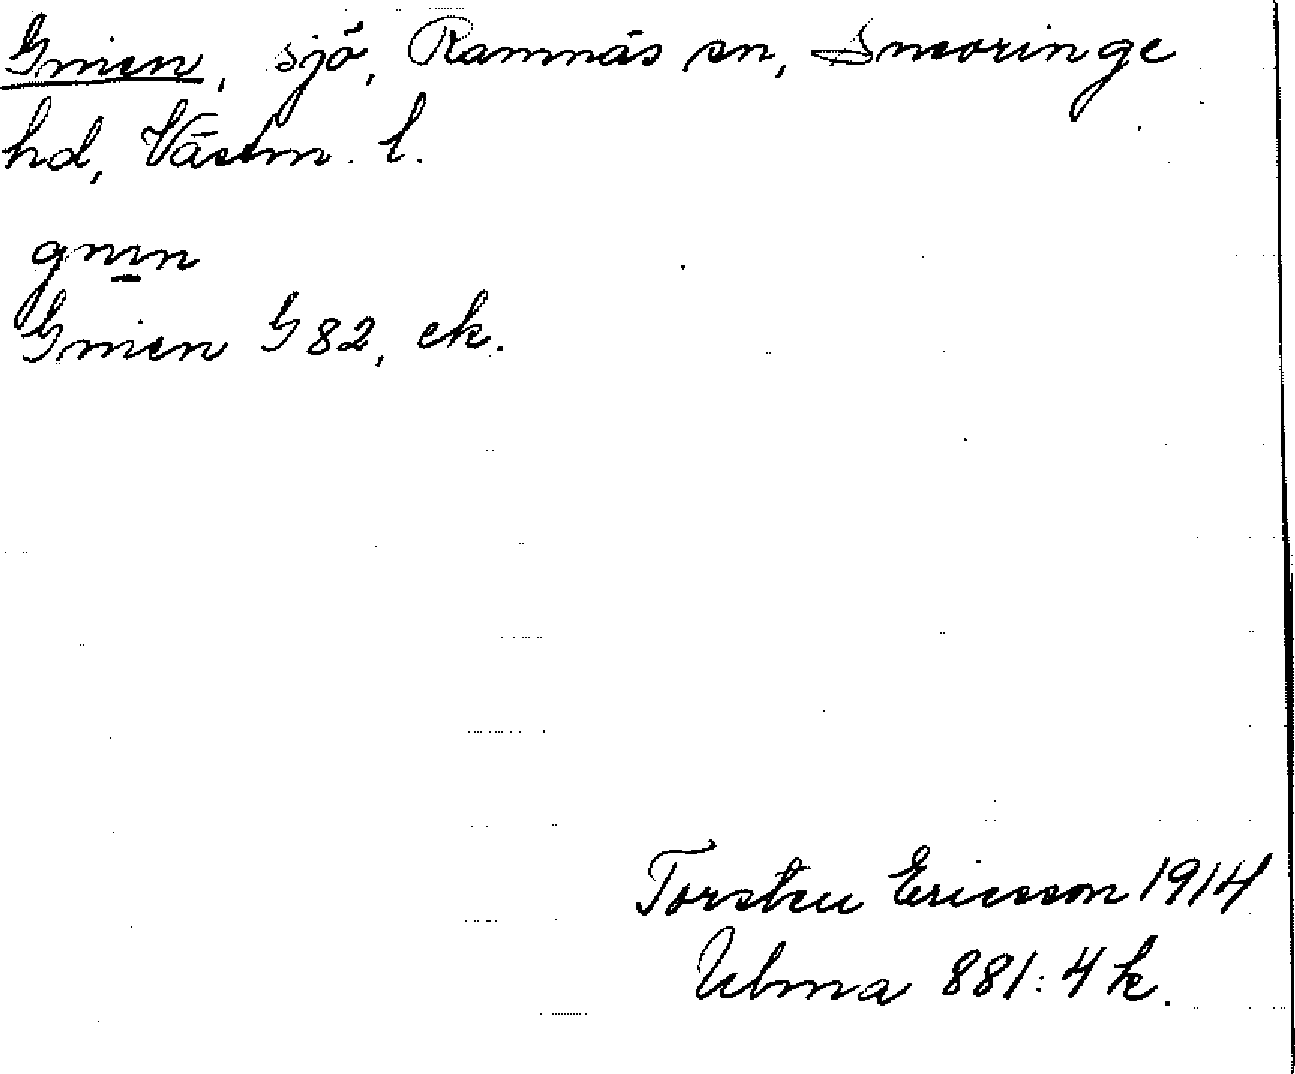 Gnien, sjö, Ramnäs sn, Snevringe
hd, Västm. l.
Gnien G 82, ek.
Torsten Ericsson 1914
Ulma 881:4 k.